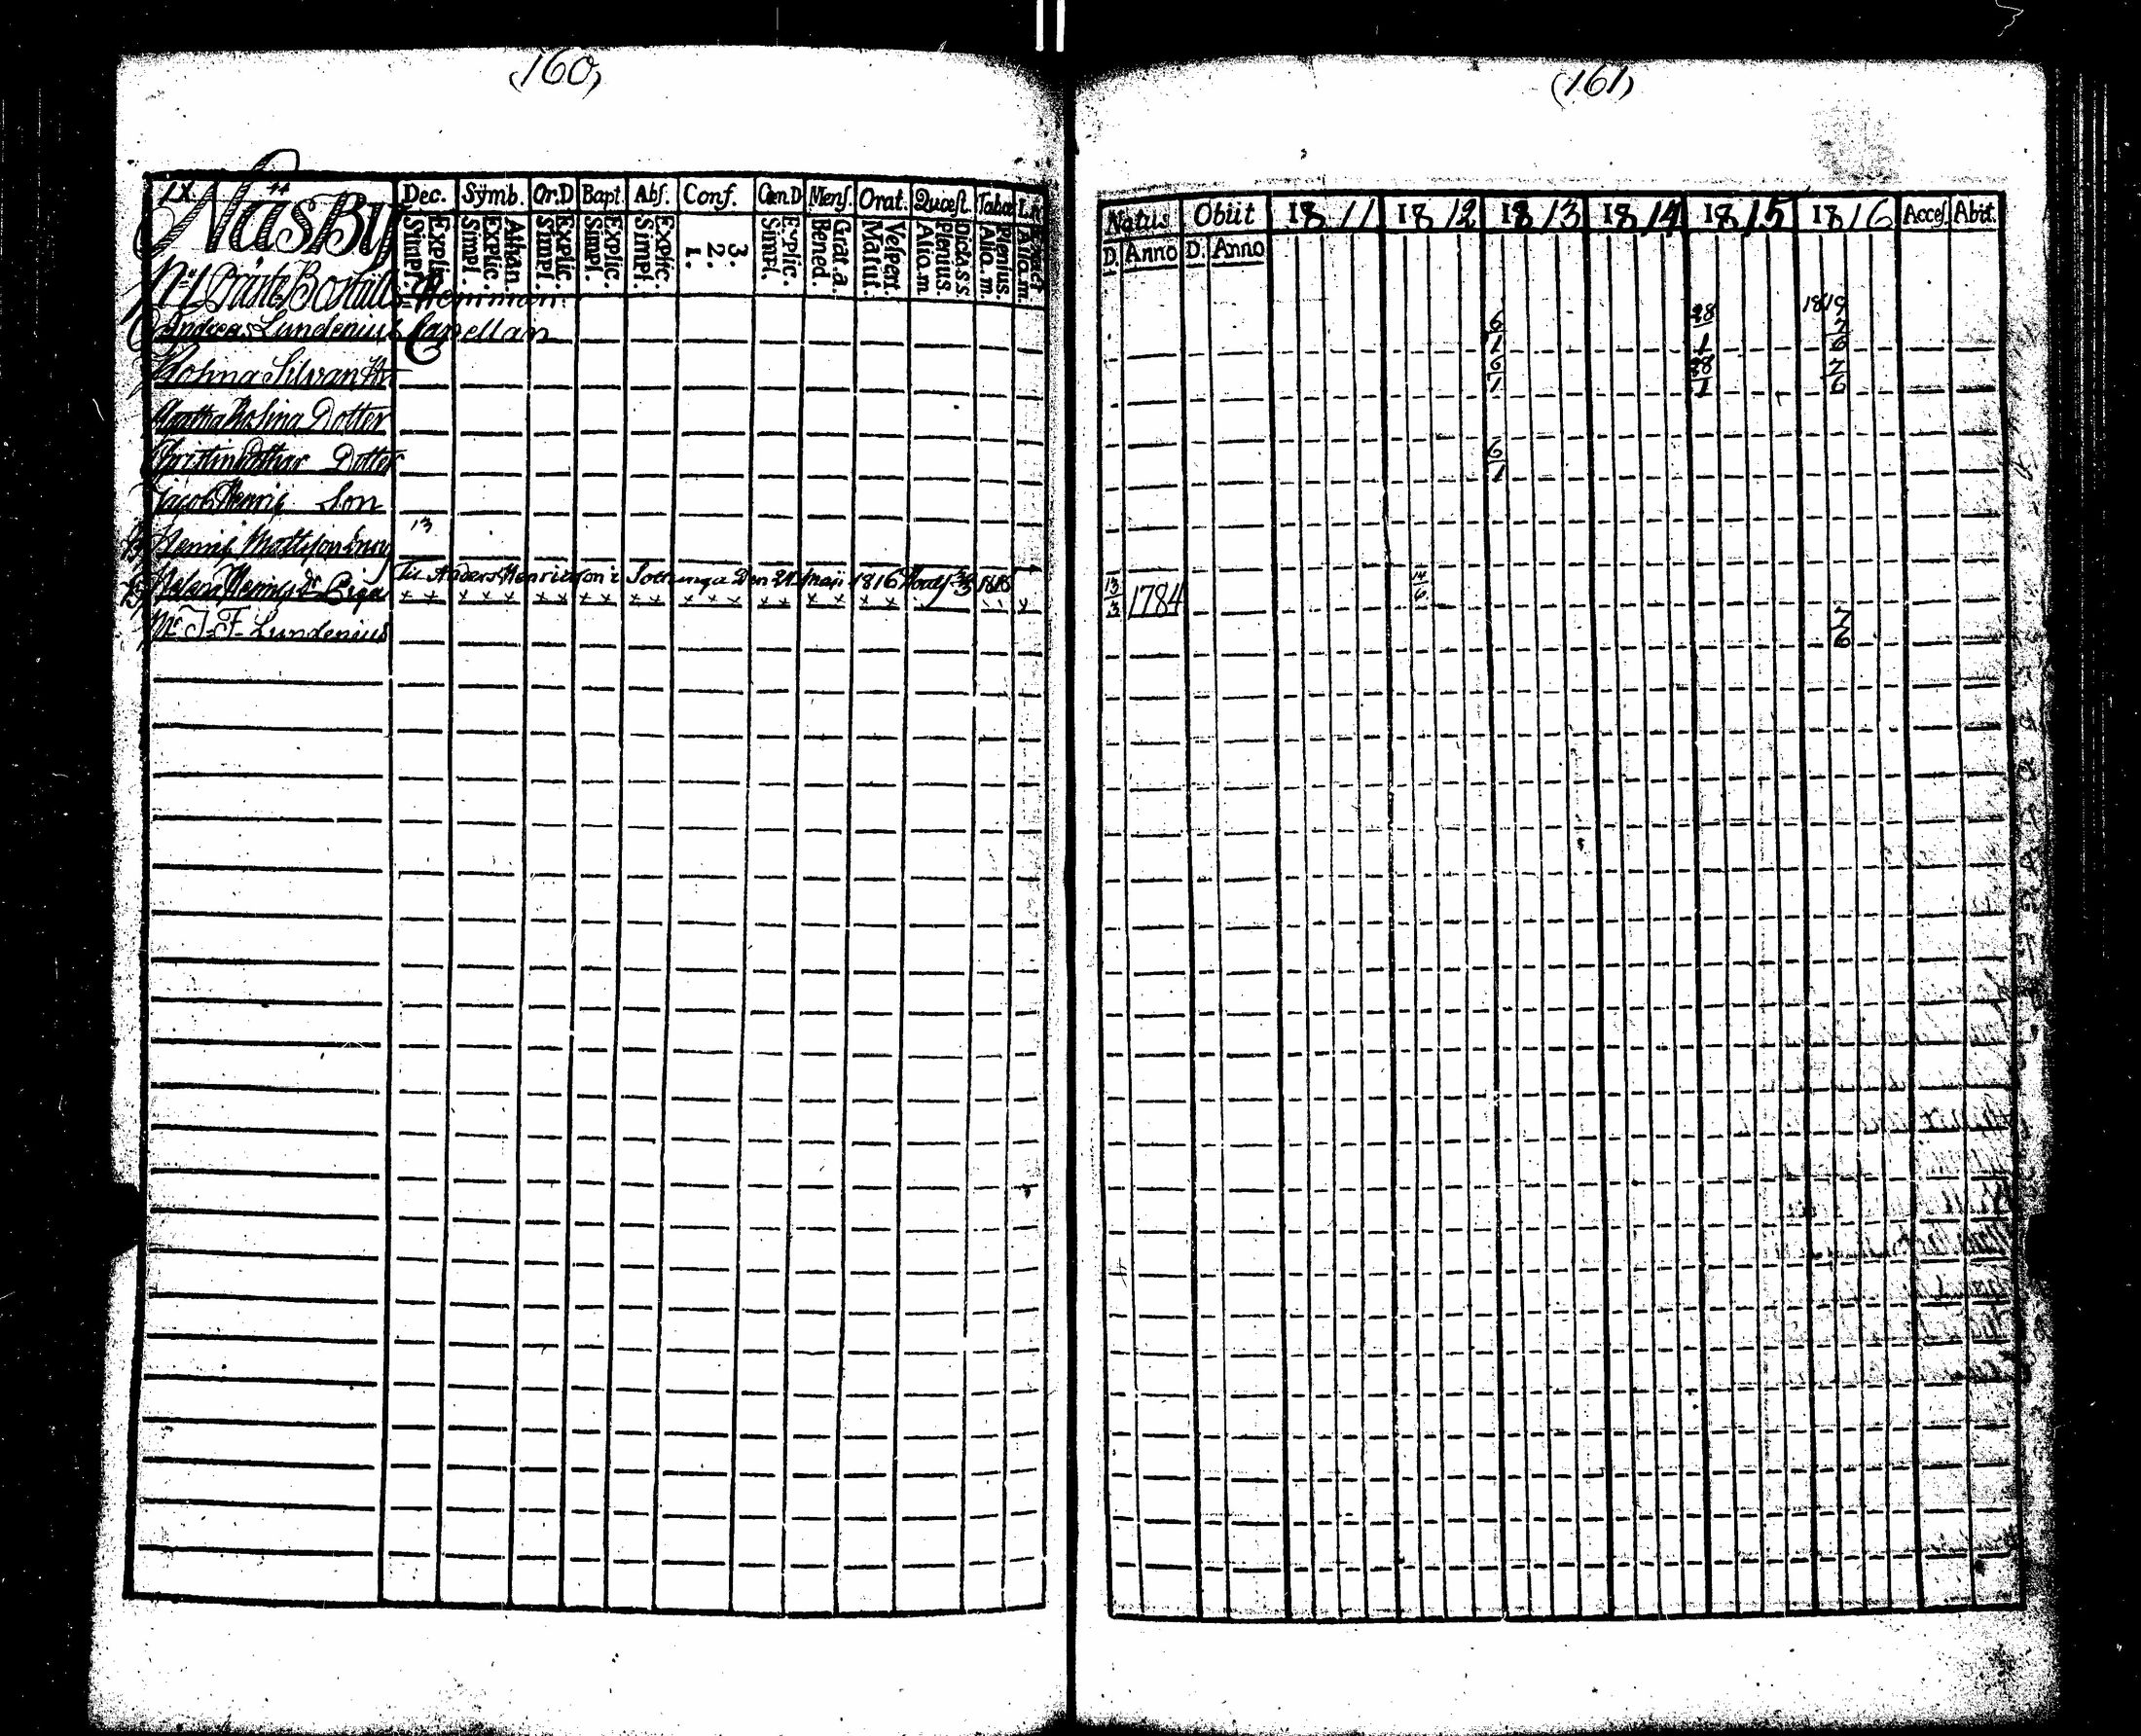 (160)
IX.
Näsby
Dec. Symb. Or.D Bapt. Abs. Conf. Cœn.D Mens. Orat. Quæst. Tabœ
Simpl. Explic. Simpl. Explic. Athan. Simpl. Explic. Simpl. Explic. Simpl. Explic. 1. 2. 3. Simpl. Explic. Bened. Grat.a. Matut. Vespert. Aliq.m Plenius. Dicta S.S. Aliq.m. Plenius. Aliq.m.
No 1 Präste Boställs Hemman
Andreas Lundenius Capellan
Rosina Silvan
Agatha Rosina Dotter
Christina Dotter
Jacob Henric Son
Henric Mattsson 13
Til Anders Henricsson i den 21 Maji 1816
Helena Henrics dr Piga x x x x x x x x x x x x x x x x x x x x
Mr J. F. Lundenius
(161)
Natus Obiit 1811 1812 1813 1814 1815 1816 Access Abit.
D. Anno D. Anno
1819
6/1 28/1 7/6
6/1 28/1 7/6
6/1
13/3 1784 14/6
7/6